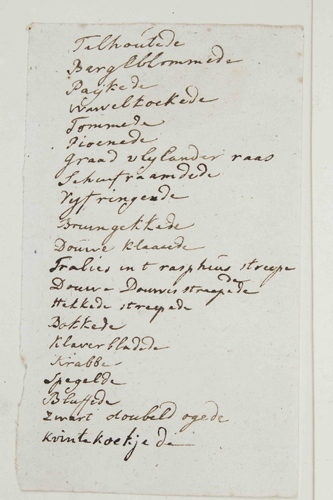 Talhoutede
Bargelblommede
Paijkede
Wawelkoekede
Tommede
Pioenede
graad vlylander raas
Schuifraamdede
Vijfringende
Bruingekkede
Douwe Klaasede
Tralies int rasphuis streepede
Douwe Douwes streepede
Hekkede streepede
Bokkede
Klaverbladede
Krabbe
Spegelde
Bluffede
zwart doubeld ogede
Kvintekoekjede